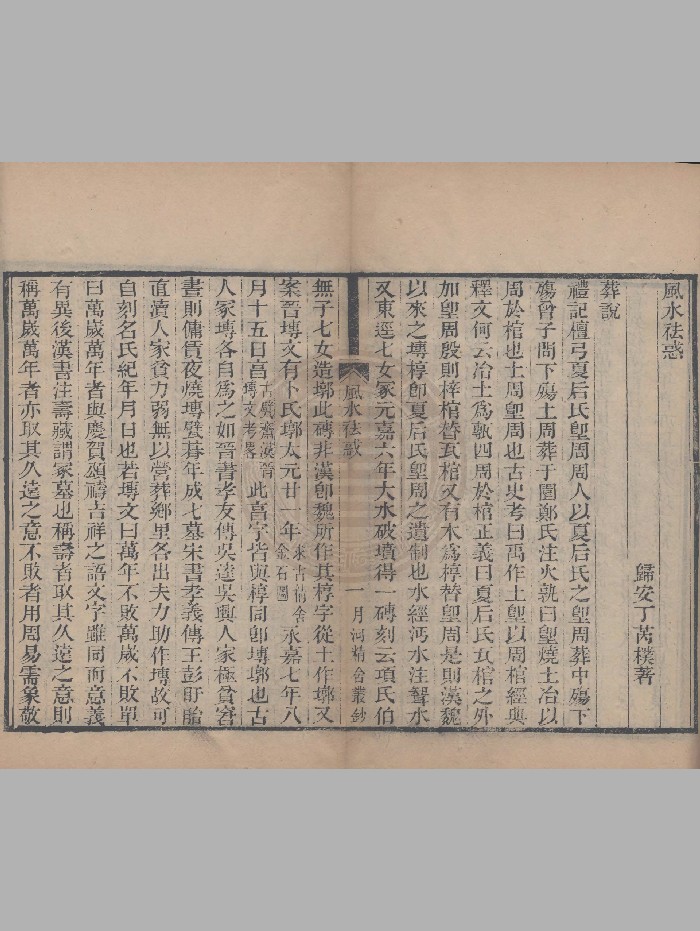 風水祛惑
歸安丁芮樸著
葬說
禮記檀弓夏后氏堲周周人以夏后氏之堲周葬中殤下
殤曾子問下殤土周葬于園鄭氏注火孰曰堲燒土冶以
周於棺也土周堲周也古史考曰禹作土堲以周棺經典
釋文何云冶土爲甎四周於棺正義曰夏后氏瓦棺之外
加堲周殷則梓棺替瓦棺又有木爲椁替堲周是則漢魏
以來之塼椁卽夏后氏堲周之遺制也水經沔水注聱水
又東逕七女冢元嘉六年大水破墳得一磚刻云項氏伯
風水祛惑
一
月河精舍叢鈔
無子七女造墎此磚非漢卽魏所作其椁字從土作墎又
案晉塼文有卜氏墎太元廿一年來古倩舍金石圖永嘉七年八
月十五日亯古甓齋漢晉塼文考畧此亯字皆與椁同卽塼墎也古
人冢塼各自爲之如晉書孝友傳吳逵吳興人家極貧窘
晝則傭賃夜燒塼甓朞年成七墓宋書孝義傳王彭盱眙
直瀆人家貧力弱無以營葬鄉里各出夫力助作塼故可
自刻名氏紀年月日也若塼文曰萬年不敗萬歲不敗單
曰萬歲萬年者與慶賀頌禱吉祥之語文字雖同而意義
有異後漢書注壽藏謂冢墓也稱壽者取其久遠之意則
稱萬歲萬年者亦取其久遠之意不敗者用周易需象敬